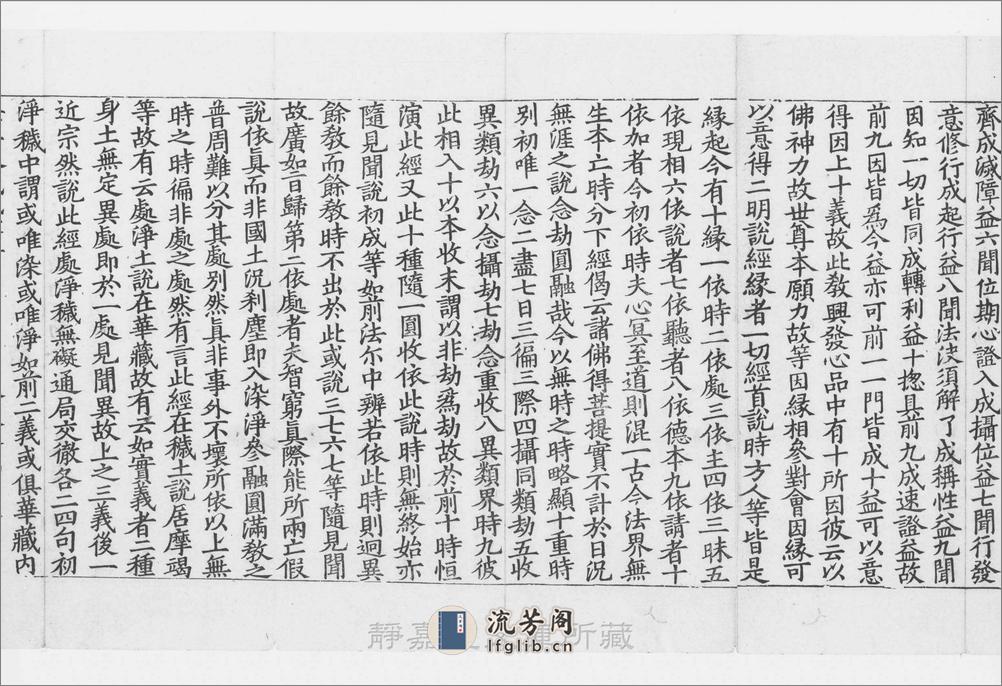 齊成滅障益六聞位期心證入成攝位益七聞行發
意修行成起行益八聞法決須解了成稱性益九聞
因知一切皆同成轉利益十揔具前九成速證益故
前九因皆爲今益亦可前一一門皆成十益可以意
得因上十義故此教興發心品中有十所因彼云以
佛神力故世尊本願力故等因緣相參對會因緣可
以意得二明說經緣者一切經首說時方人等皆是
緣起今有十緣一依時二依處三依主四依三昧五
依現相六依說者七依聽者八依德本九依請者十
依加者今初依時夫心冥至道則混一古今法界無
生本亡時分下經偈云諸佛得菩提實不計於日況
無涯之說念劫圓融哉今以無時之時略顯十重時
別初唯一念二盡七日三徧三際四攝同類劫五收
異類劫六以念攝劫七劫念重收八異類界時九彼
此相入十以本收末謂以非劫爲劫故於前十時恒
演此經又此十種隨一圓收依此說時則無終始亦
隨見聞說初成等如前法尒中辨若依此時則迥異
餘教而餘教時不出於此或說三七六七等隨見聞
故廣如百歸第二依處者夫智窮真際能所兩亡假
說依真而非國土況刹塵即入染淨參融圓滿教之
普周難以分其處別然真非事外不壞所依以上無
時之時徧非處之處然有言此經在穢土說居摩竭
等故有云處淨土說在華藏故有云如實義者二種
身土無定異處即於一處見聞異故上之三義後一
近宗然說此經處淨穢無礙通局交徹各二四句初
淨穢中謂或唯染或唯淨如前二義或俱華藏內
靜嘉 所藏
流芳阁
lfglib.cn